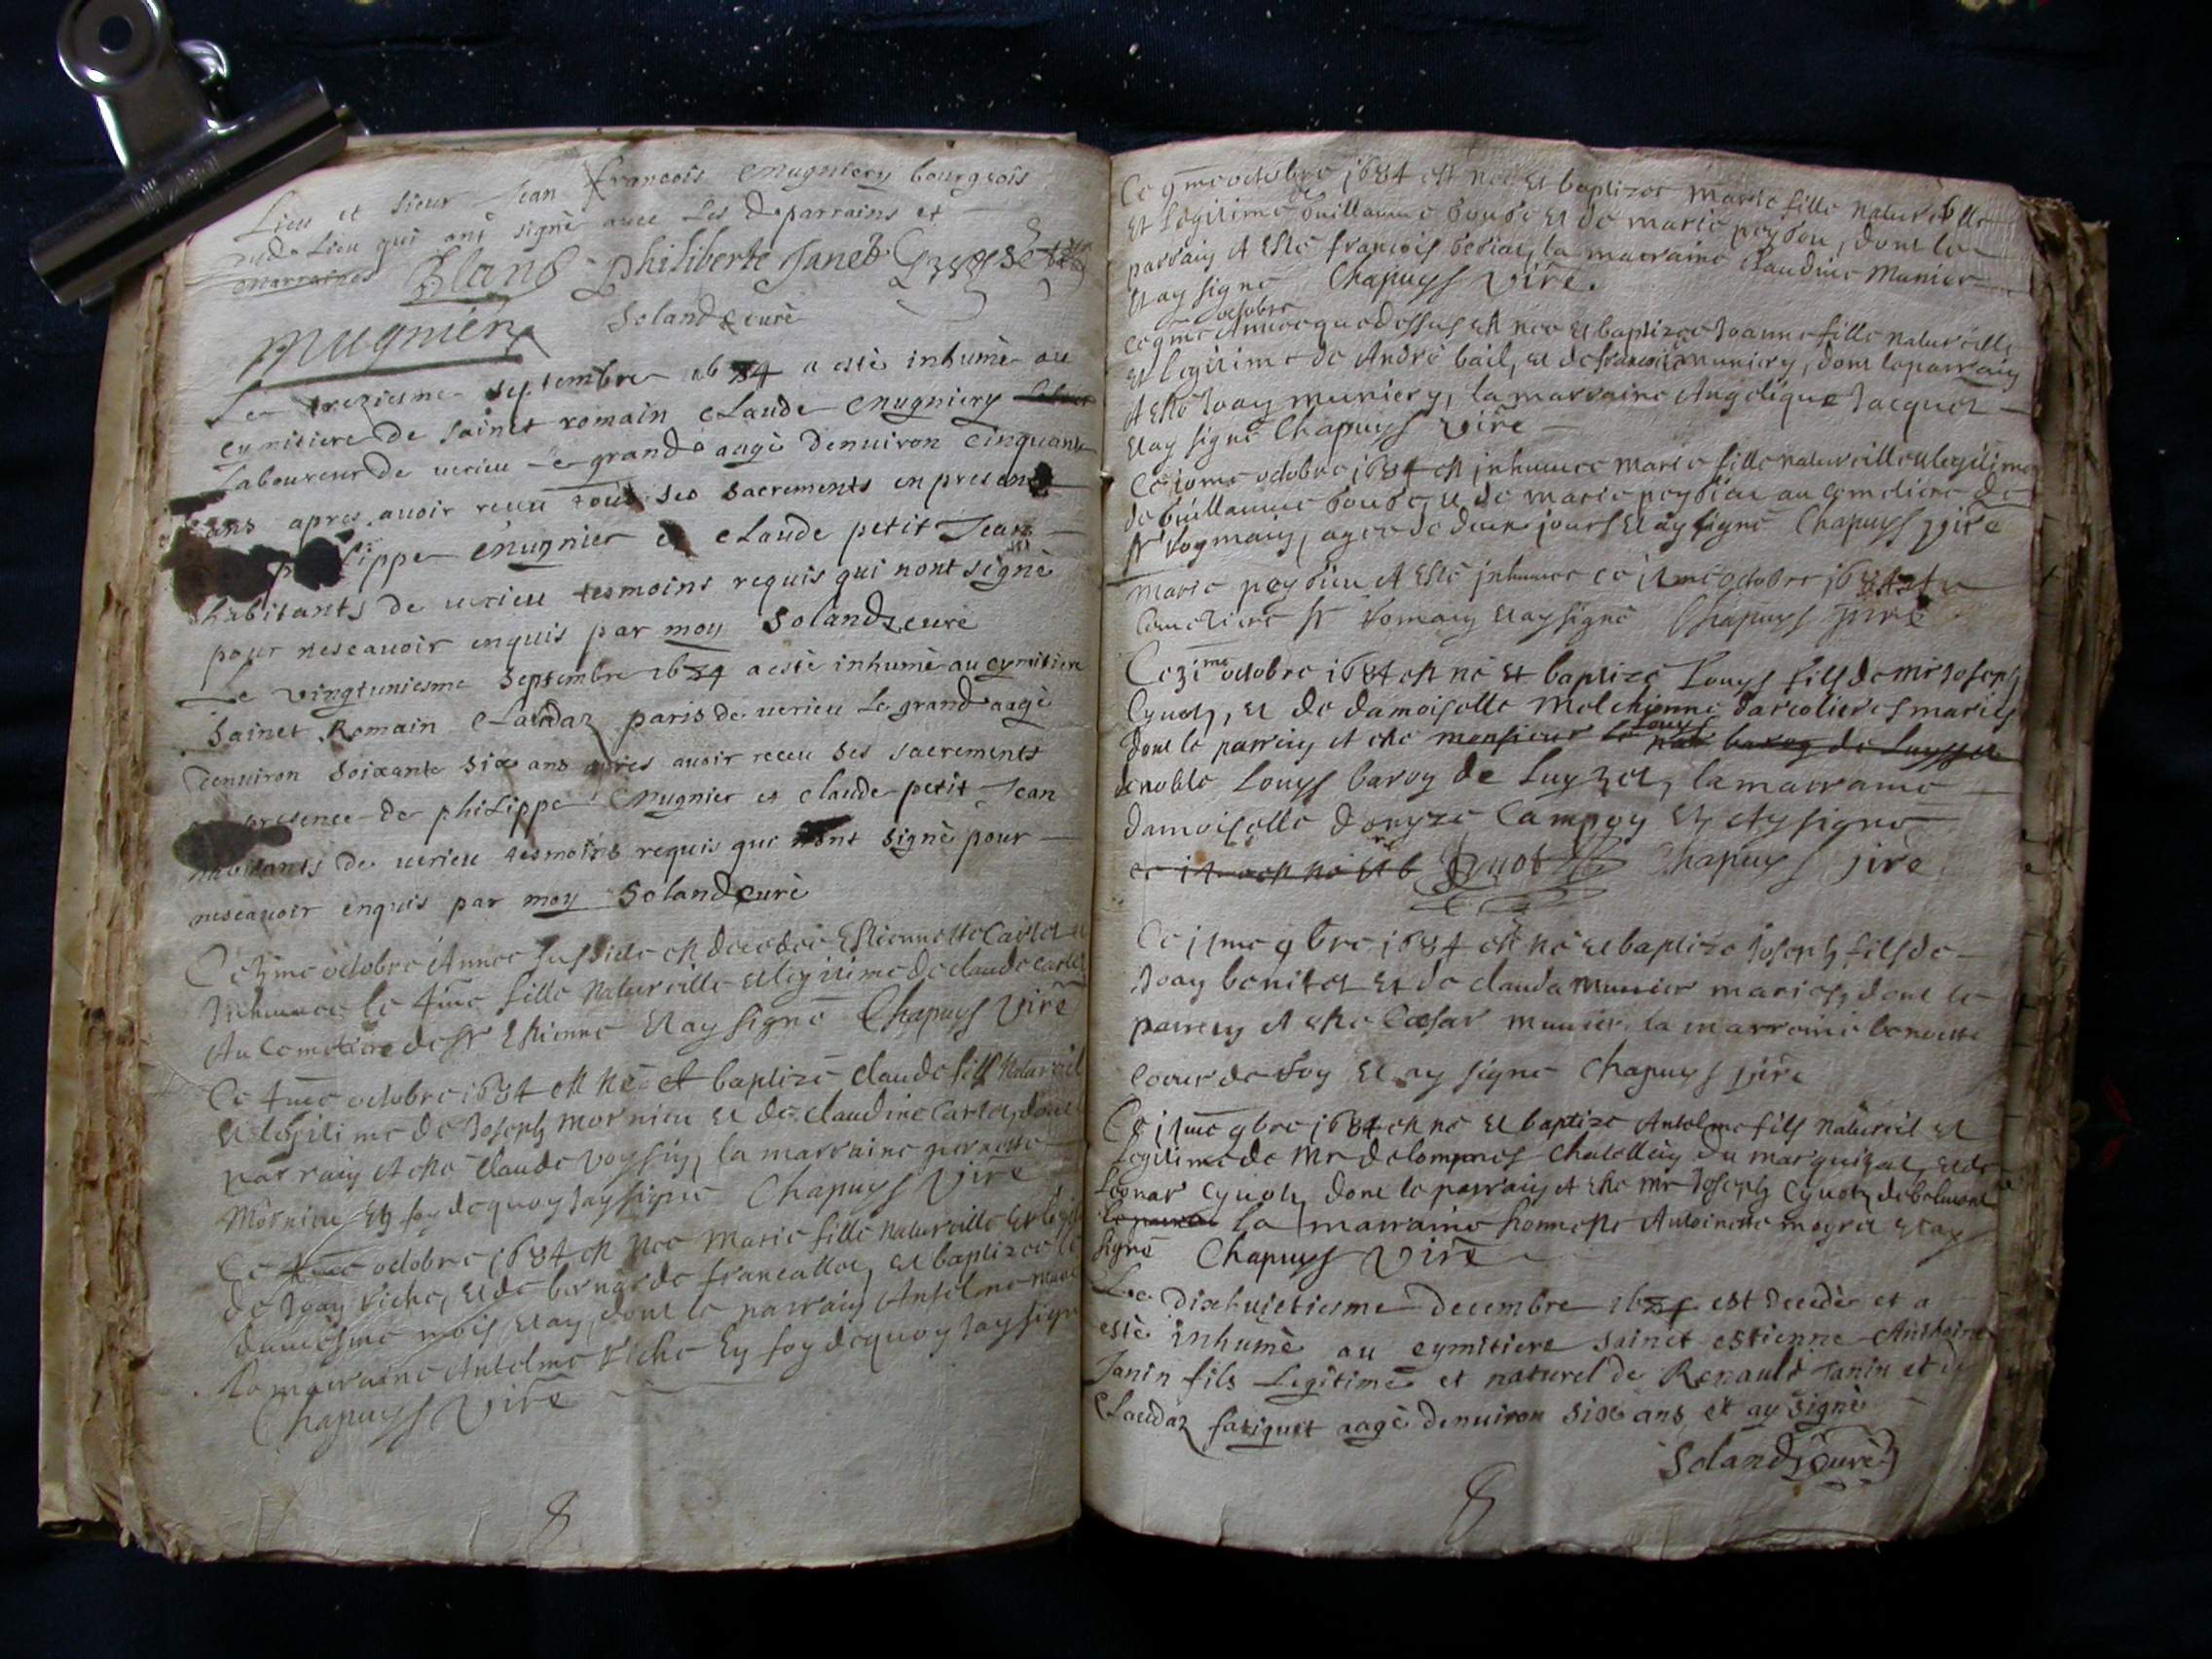 Lieu et sieur Jean francois Mugniery bourgeois
dud. Lieu qui ont signé avec Les d. parrains et
marraines Blanc Philiberte Janet
Mugnier Soland curé
Le trezieme septembre 1684 a estè inhumè au
cymitiere de sainct romain claude Mugniery
Laboureur de verieu le grand aagè denuiron cinquante
ans apres avoir receu tous ses sacrements en presence
lippe Mugnier et claude petit Jean
habitants de verieu tesmoins requis qui nont signè
pour nescavoir enquis par moy Soland curè
Le vingtuniesme Septembre 1684 a estè inhumè au cymitiere
Sainct Romain Claudaz paris de verieu Le grand aagè
denuiron soixante six ans apres avoir receu ses sacrements
presence de philippe Mugnier et claude petit Jean
habitants de verieu tesmoins requis qui nont signè pour
nescavoir enquis par moy Soland curè
Ce 3me octobre Annee susdite est decedee Estiennette Carlet
Inhumee le 4me fille naturelle et legitime de claude Carlet
Au Cemetiere de St Estienne et ay signé Chapuys vire
Ce 4me octobre 1684 est né et baptizé claude fils naturel
et legitime de Joseph mornieu et de claudine Carlet, dont
parrain A esté claude voysin, la marraine pernette
Mornieu En foy de quoy Jay signé Chapuys vire
Ce octobre 1684 est nee Marie fille naturelle et legit
de Joan Riche, et de bernarde francallet, et baptizee le
dumesme mois et an, dont le parrain Antelme
la marraine Antelme Riche En foy dequoy Jay signé
Chapuys vire
8
Ce 9me octobre 1684 est nee et baptizee Marie fille naturelle
et legitime de Guillaume Gouge et de marie peysou, dont le
parrain A Esté francois, la marraine claudine Munier
et ay signé Chapuys vire.
octobre
Ce 9me Annee que dessus est nee et baptizee Joanne fille naturelle
et legitime de André bail, et de francoise muniery, dont le parrain
A esté Joan muniery, la marraine Angelique Jacquet
et ay signé Chapuys vire
Ce 10me octobre 1684 est inhumee marie fille naturelle et legitime
de Guillaume Gouge, et de marie au cemetiere de
St Romain, agee de deux jours et ay signé Chapuys vire
Marie A Esté inhumee ce 11me octobre 1684 au
Cemetiere St Romain et ay signé Chapuys vire
Ce 31me octobre 1684 est né et baptizé Louys fils de mr Joseph
Cynot, et de damoiselle Melchionne Darcolieres mariés
dont le parrain A esté monsieur le baron de Luysset
de noble Louys baron de Luyset, la marraine
damoiselle Campon Et Ay signé
Cynot Chapuys vire
Ce 11me 9bre 1684 est né et baptizé Joseph fils de
Joan benitet et de clauda Munier mariés, dont le
parrain A esté Cæsar munier la marraine benoitte
coeur de Roy Et ay signé Chapuys vire
Ce 11me 9bre 1684 est né et baptizé Antelme fils naturel et
legitime de Mr delompnes chatellain du marquizat, et de
Leonar Cynot, dont le parrain A esté Mr Joseph Cynot de belmont
la marraine honneste Antoinette mogra et ay
signé Chapuys vire
Le Dixhuictiesme decembre 1684 est decedè et a
estè inhumè au cymitiere sainct estienne Anthoine
Janin fils Legitime et naturel de Renault Janin et de
Claudaz fatiguet aagè denuiron six ans et ay signè
Soland curè
8